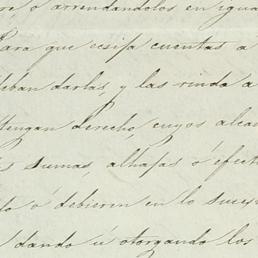 ó arrendandolos en igua
Para que ecsija cuentas a
deban darlas, y las rinda a
tengan derecho, cuyos alca
sumas, alhajas ó efect
do ó debieren en lo suces
dando ú otorgando los